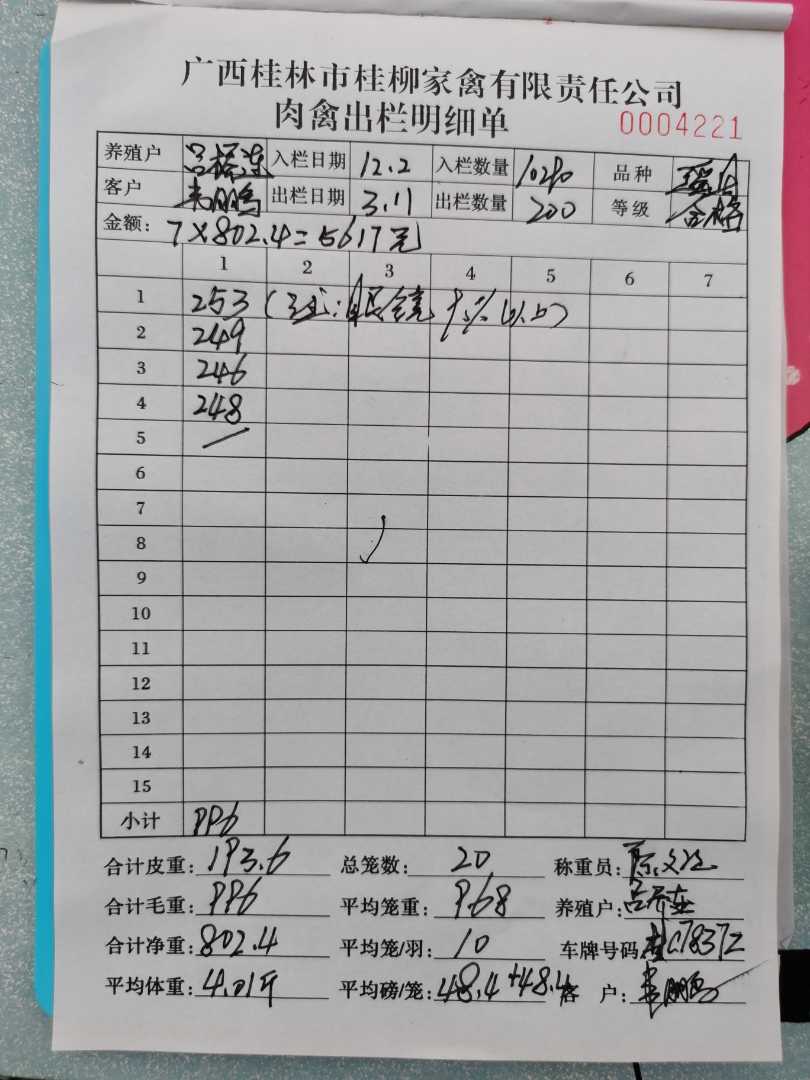 广西桂林市桂柳家禽有限责任公司
肉禽出栏明细单 0004221
养殖户 入栏日期 12.2 入栏数量 10290 品种
客户 韦鹏鸟 出栏日期 3.11 出栏数量 200 等级 合格
金额: 7×802.4=5617元
1 2 3 4 5 6 7
1 253
2 249
3 246
4 248
5
6
7
8
9
10
11
12
13
14
15
小计 996
合计皮重: 193.6 总笼数: 20 称重员:
合计毛重: 996 平均笼重: 9.68 养殖户:
合计净重: 802.4 平均笼/羽: 10 车牌号码 桂C7837Z
平均体重: 4.01斤 平均磅/笼: 48.4+48.4 客 户: 韦鹏鸟